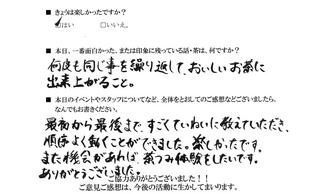 ■ きょうは楽しかったですか？
☑はい □いいえ。
■ 本日、一番面白かった、または印象に残っている話・茶は、何ですか？
何度も同じ事を繰り返して、おいしいお茶に
出来上がること。
■ 本日のイベントやスタッフについてなど、全体をとおしてのご感想などございましたら、
なんでもお書きください。
最初から最後まで、すごくていねいに教えていただき、
順序よく動くことができました。楽しかったです。
また機会があれば、茶つみ体験をしたいです。
ありがとうございました。
ご協力ありがとうございました！！
ご意見ご感想は、今後の活動に生かしてまいります。